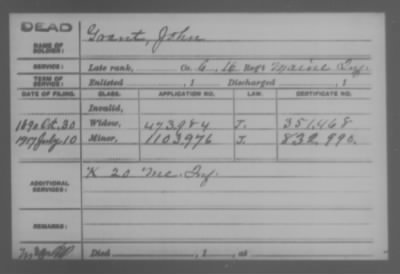 DEAD
NAME OF SOLDIER: Grant, John
SERVICE: Late rank, Co. G, 16 Reg't Maine Inf.
TERM OF SERVICE: Enlisted , 1 Discharged , 1
DATE OF FILING. CLASS. APPLICATION NO. LAW. CERTIFICATE NO.
Invalid,
1890 Oct. 30 Widow, 473984 J. 351,468
1917 July 10 Minor, 1103976 J. 832,990.
ADDITIONAL SERVICES: K 20 Me. Inf.
REMARKS:
Died , 1 , at